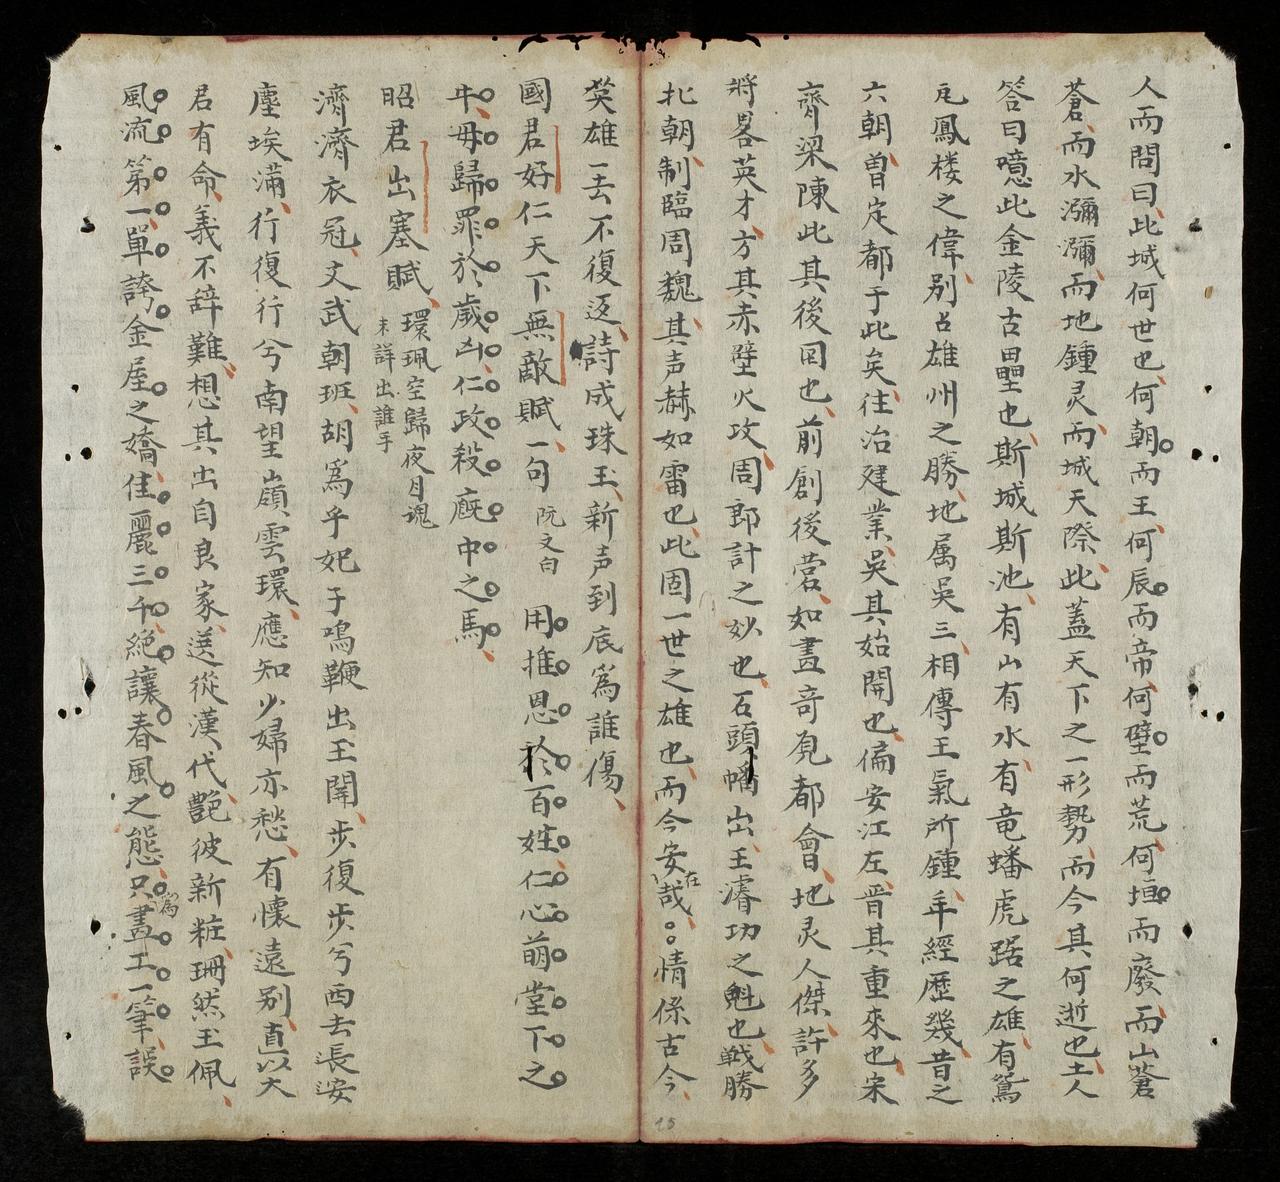 人而問曰此城何世也何朝而王何辰而帝何壁而荒何垣而廢而山蒼
蒼而水瀰瀰而地鍾灵而城天際此蓋天下之一形勢而今其何逝也土人
答曰噫此金陵古壘也斯城斯池有山有水有竜蟠虎踞之雄有鴛
瓦鳳楼之偉别占雄州之勝地属吳三相傳王氣所鍾年經歷幾昔之
六朝曾定都于此矣往治建業吳其始開也偏安江左晋其重來也宋
齊梁陳此其後国也前創後営如畫竒覌都會地灵人傑許多
將畧英才方其赤壁火攻周郎計之妙也石頭幡出王濬功之魁也戦勝
北朝制臨周魏其声赫如雷也此固一世之雄也而今安在哉〻情係古今
英雄一去不復返詩成珠玉新声到底為誰傷
國君好仁天下無敵賦一句 阮文白 用推恩於百姓仁心萌堂下之
牛毋歸罪於歲凶仁政殺廐中之馬
昭君出塞賦 環珮空歸夜月魂 未詳出誰手
濟濟衣冠文武朝班胡爲乎妃子鳴鞭出玉關步復步兮西去長安
塵埃滿行復行兮南望嶺雲環應知少婦亦愁有懷遠别直以大
君有命義不辞難想其出自良家送從漢代艶彼新粧珊然玉佩
風流第一單誇金屋之嬌佳麗三千絶讓春風之態只為畫工一筆誤